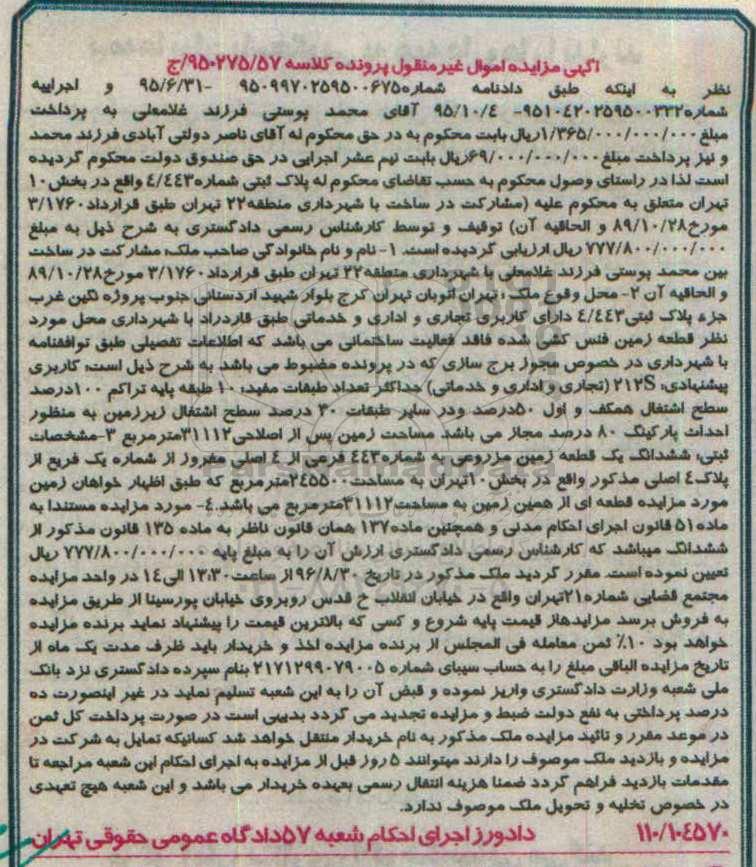 آگهی مزایده اموال غیرمنقول پرونده کلاسه ۹۵۰۲۷۵/۵۷/ج
نظر به اینکه طبق دادنامه شماره۹۵۰۹۹۷۰۲۵۹۵۰۰۶۷۵ -۹۵/۶/۳۱ و اجراییه
شماره۹۵۱۰۴۲۰۲۵۹۵۰۰۳۲۲- ۹۵/۱۰/۴ آقای محمد پوستی فرزند غلامعلی به پرداخت
مبلغ۱/۳۶۵/۰۰۰/۰۰۰/۰۰۰ریال بابت محکوم به در حق محکوم له آقای ناصر دولتی آبادی فرزند محمد
و نیز پرداخت مبلغ۶۹/۰۰۰/۰۰۰/۰۰۰ریال بابت نیم عشر اجرایی در حق صندوق دولت محکوم گردیده
است لذا در راستای وصول محکوم به حسب تقاضای محکوم له پلاک ثبتی شماره۴/۴۴۳ واقع در بخش۱۰
تهران متعلق به محکوم علیه (مشارکت در ساخت با شهرداری منطقه۲۲ تهران طبق قرارداد۳/۱۷۶۰
مورخ۸۹/۱۰/۲۸ و الحاقیه آن) توقیف و توسط کارشناس رسمی دادگستری به شرح ذیل به مبلغ
۷۷۷/۸۰۰/۰۰۰/۰۰۰ ریال ارزیابی گردیده است. ۱- نام و نام خانوادگی صاحب ملک: مشارکت در ساخت
بین محمد پوستی فرزند غلامعلی با شهرداری منطقه۲۲ تهران طبق قرارداد۳/۱۷۶۰ مورخ۸۹/۱۰/۲۸
و الحاقیه آن ۲- محل وقوع ملک : تهران اتوبان تهران کرج بلوار شهید اردستانی جنوب پروژه نگین غرب
جزء پلاک ثبتی۴/۴۴۳ دارای کاربری تجاری و اداری و خدماتی طبق قاردراد با شهرداری محل مورد
نظر قطعه زمین فنس کشی شده فاقد فعالیت ساختمانی می باشد که اطلاعات تفصیلی طبق توافقنامه
با شهرداری در خصوص مجوز برج سازی که در پرونده مضبوط می باشد به شرح ذیل است: کاربری
پیشنهادی: ۲۱۲S (تجاری و اداری و خدماتی) حداکثر تعداد طبقات مفید: ۱۰ طبقه پایه تراکم ۱۰۰درصد
سطح اشتغال همکف و اول ۵۰درصد ودر سایر طبقات ۳۰ درصد سطح اشتغال زیرزمین به منظور
احداث پارکینگ ۸۰ درصد مجاز می باشد مساحت زمین پس از اصلاحی۳۱۱۱۲مترمربع ۳-مشخصات
ثبتی: ششدانگ یک قطعه زمین مزروعی به شماره۴۴۳ فرعی از ۴ اصلی مفروز از شماره یک فریع از
پلاک۴ اصلی مذکور واقع در بخش۱۰تهران به مساحت۲۴۵۵۰۰مترمربع که طبق اظهار خواهان زمین
مورد مزایده قطعه ای از همین زمین به مساحت۳۱۱۱۲مترمربع می باشد.۴- مورد مزایده مستندا به
ماده۵۱ قانون اجرای احکام مدنی و همچنین ماده۱۳۷ همان قانون ناظر به ماده ۱۳۵ قانون مذکور از
ششدانگ میباشد که کارشناس رسمی دادگستری ارزش آن را به مبلغ پایه ۷۷۷/۸۰۰/۰۰۰/۰۰۰ ریال
تعیین نموده است. مقرر گردید ملک مذکور در تاریخ ۹۶/۸/۳۰ از ساعت۱۳:۳۰ الی۱۴ در واحد مزایده
مجتمع قضایی شماره۲۱تهران واقع در خیابان انقلاب خ قدس روبروی خیابان پورسینا از طریق مزایده
به فروش برسد مزایدهاز قیمت پایه شروع و کسی که بالاترین قیمت را پیشنهاد نماید برنده مزایده
خواهد بود ۱۰٪ ثمن معامله فی المجلس از برنده مزایده اخذ و خریدار باید ظرف مدت یک ماه از
تاریخ مزایده الباقی مبلغ را به حساب سیبای شماره ۲۱۷۱۲۹۹۰۷۹۰۰۵ بنام سپرده دادگستری نزد بانک
ملی شعبه وزارت دادگستری واریز نموده و قبض آن را به این شعبه تسلیم نماید در غیر اینصورت ده
درصد پرداختی به نفع دولت ضبط و مزایده تجدید می گردد بدیهی است در صورت پرداخت کل ثمن
در موعد مقرر و تائید مزایده ملک مذکور به نام خریدار منتقل خواهد شد کسانیکه تمایل به شرکت در
مزایده و بازدید ملک موصوف را دارند میتوانند ۵ روز قبل از مزایده به اجرای احکام این شعبه مراجعه تا
مقدمات بازدید فراهم گردد ضمنا هزینه انتقال رسمی بعهده خریدار می باشد و این شعبه هیچ تعهدی
در خصوص تخلیه و تحویل ملک موصوف ندارد.
۱۱۰/۱۰۴۵۷۰ دادورز اجرای احکام شعبه ۵۷دادگاه عمومی حقوقی تهران